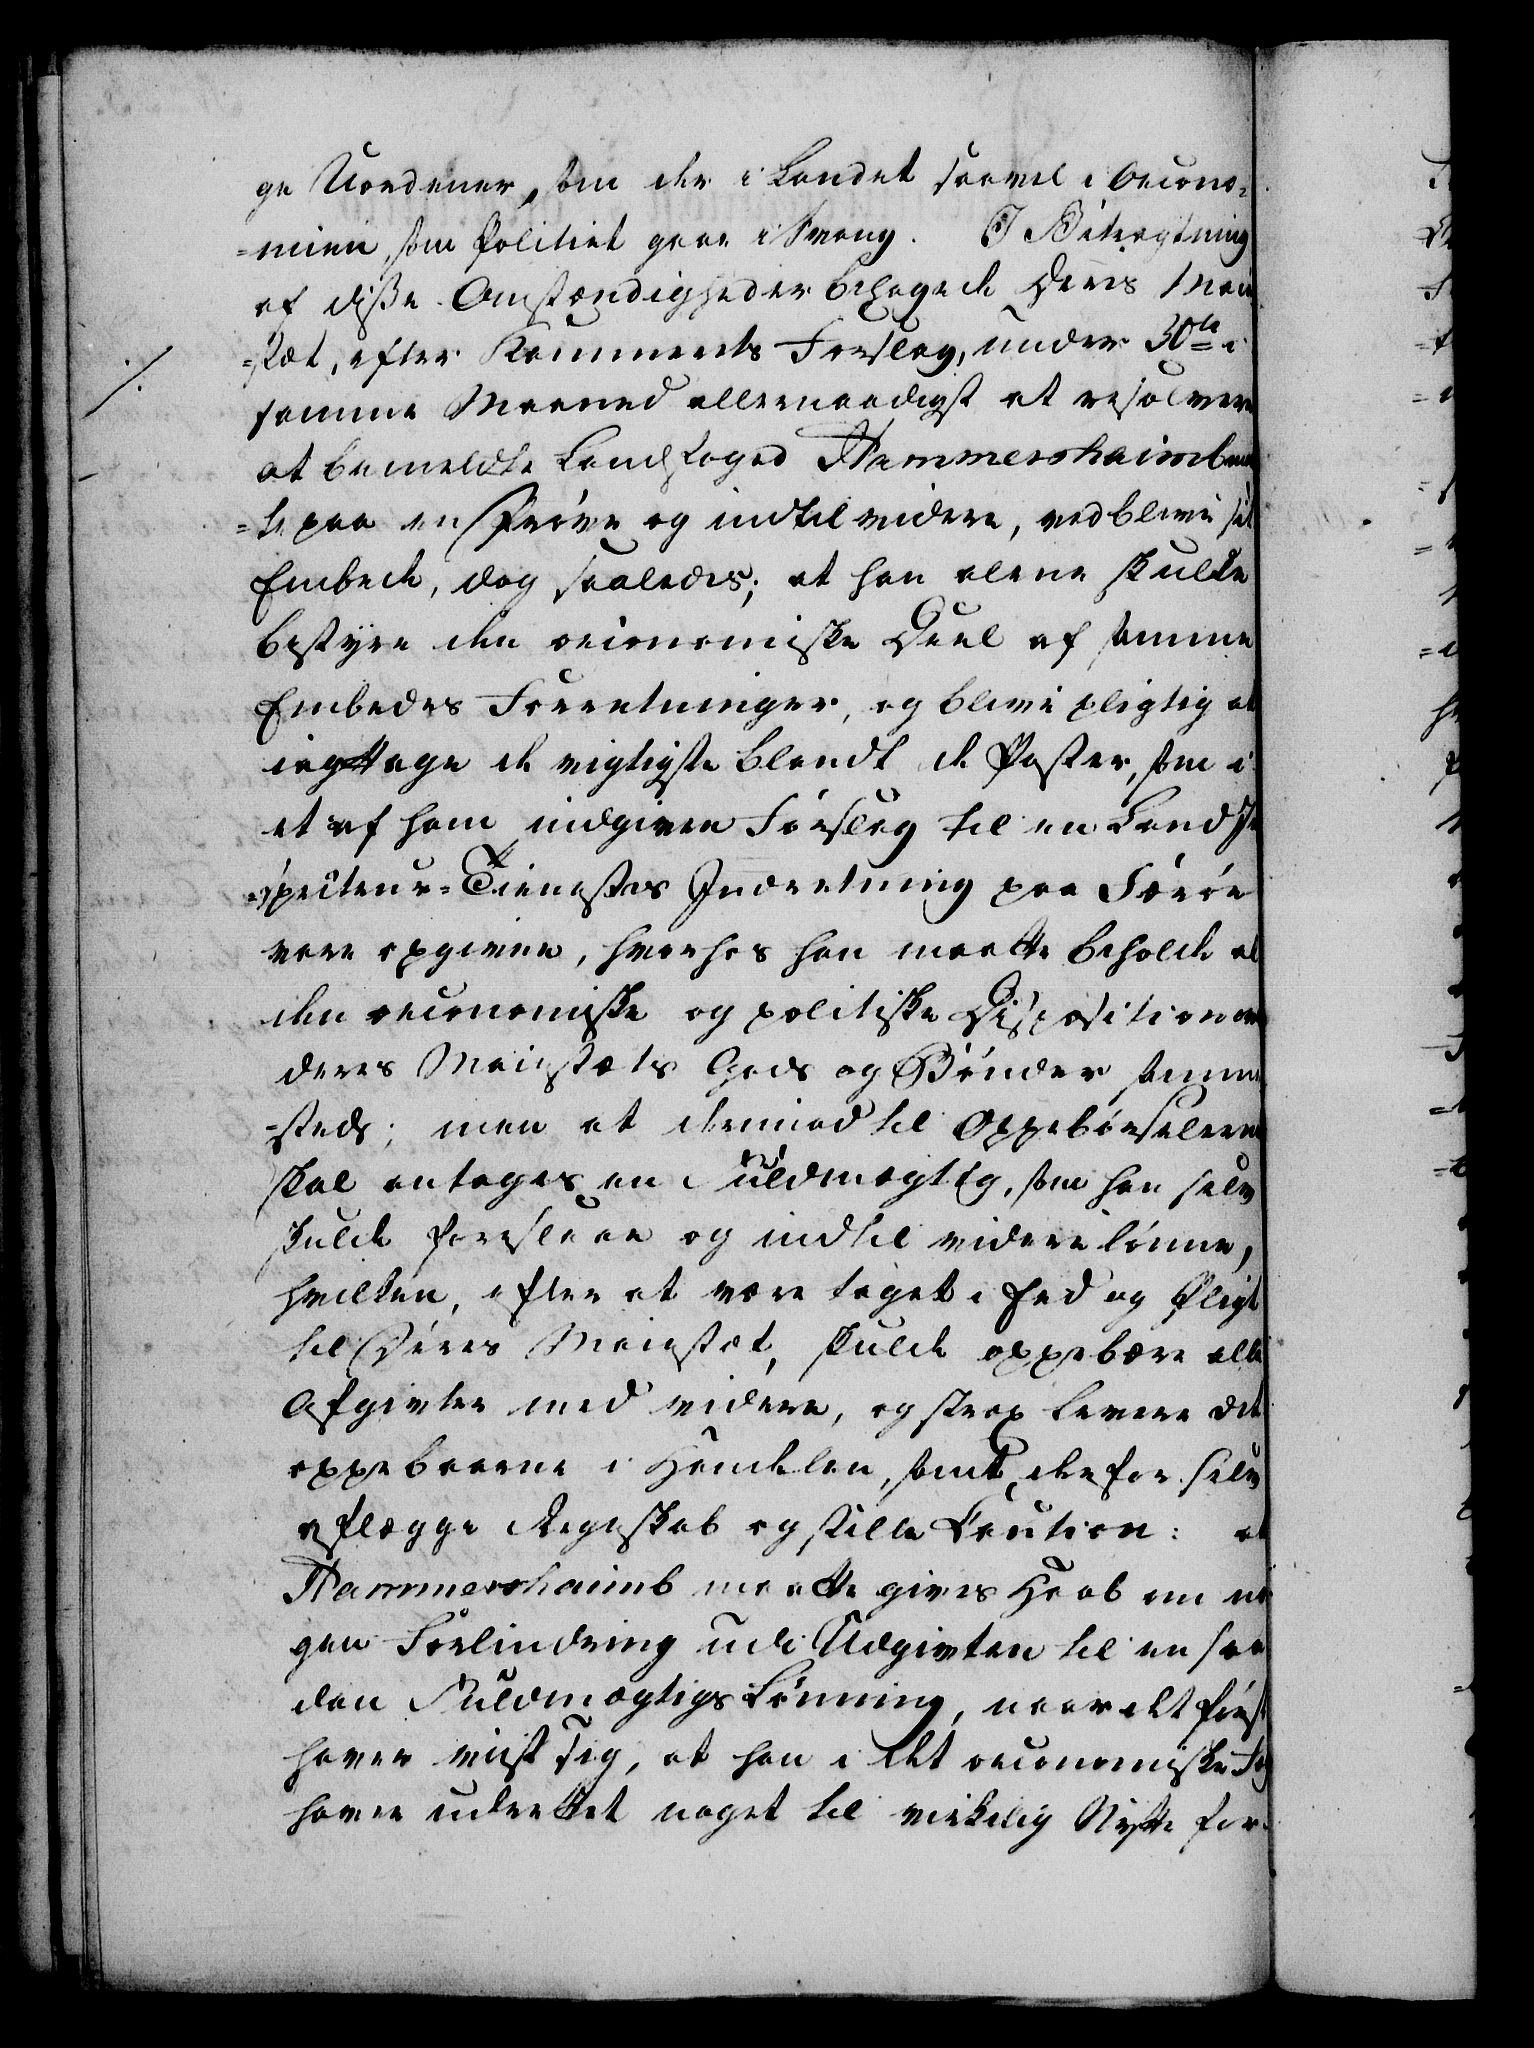 ge Uordener, som der i Landet saavel i Oecono-
=mien, som Politiet gaae i Svang. I Betragtning
af disse Omstændigheder behagede Deres Maie
=stæt, efter Kammerets Forslag, under 30te i
samme Maaned allernaadigst at resolvere
at bemeldte Landfoged Hammershaimb
=te paa en Prøve og indtil videre, vedblive sit
Embede, dog saaledes; at han alene skulde
bestyre den oeconomiske Deel af samme
Embedes Forretninger, og blive pligtig at
iagttage de vigtigste blandt de Poster, som i
et af ham indgiven Forslag til en Land In
=specteur=Tienestes Indretning paa Færøe
vare opgivne, hvorhos han maatte beholde al
den oeconomiske og politiske Disposition over
deres Maiestæts Gods og Bønder samme
=steds; men at derimod til Oppebørselerne
skal antages en Fuldmægtig, som han selv
skulde foreslaae og indtil videre lønne,
hvilken, efter at være taget i Eed og Pligt
til Deres Maiestæt, skulde oppebære alle
Afgivter med videre, og strax levere det
oppebaarne i Handelen, samt derfor selv
aflægge Regnskab og stille Caution: at
Hammershaimb maatte gives Haab om no
gen Forlindring udi Udgivten til en saa
dan Fuldmægtigs Lønning, naar det først
haver viist sig, at han i det oeconomiske Fag
haver udrettet noget til virkelig Nytte for